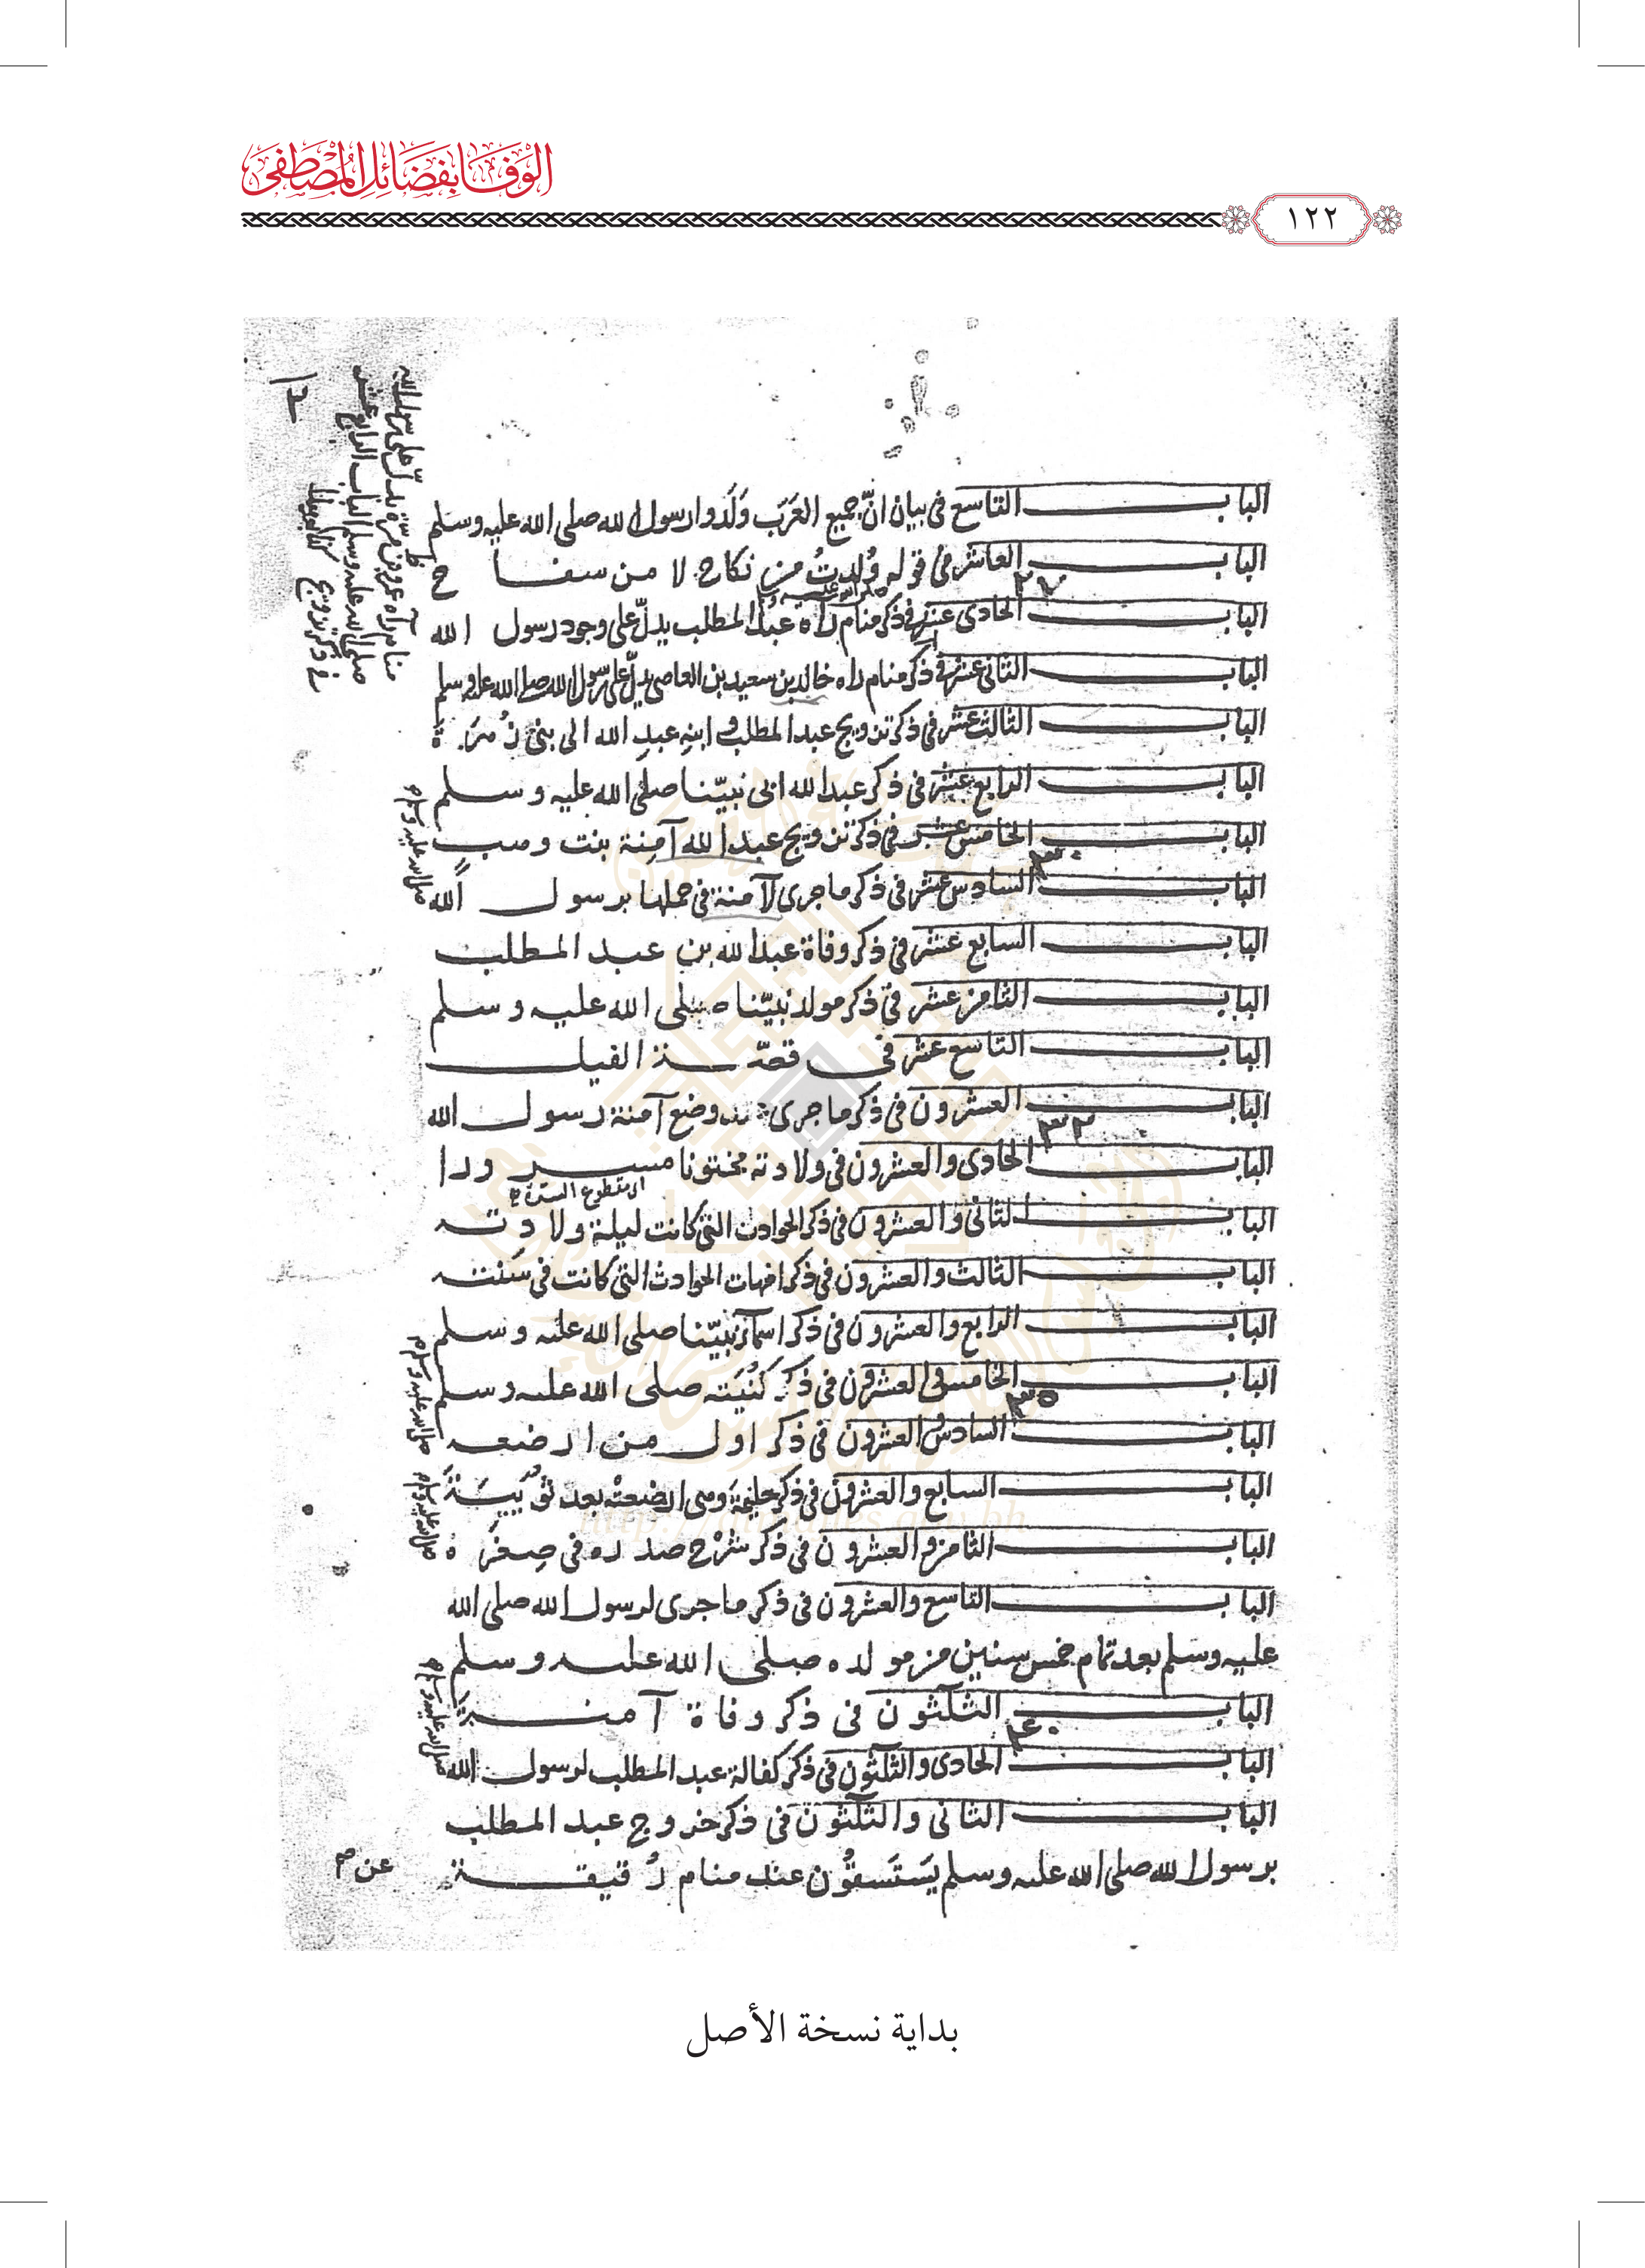 الوفا بفضائل المصطفى
١٢٢
الباب التاسع في بيان انّ جميع العَرَب وَلَدوا رسول الله صلى الله عليه وسلم
الباب العاشر في قوله وُلدتُ من نكاح لا من سفاح
٢٧
الباب الحادى عشر في ذكر منام رآه عبد المطلب يدلّ على وجود رسول الله
الباب الثانى عشر في ذكر منام راه خالد بن سعيد بن العاصى يدلّ على رسول الله صلى الله عليه وسلم
الباب الثالث عشر في ذكر تزويج عبد المطلب ابنه عبد الله الى بنى زُهرَة
الباب الرابع عشر في ذكر عبد الله ابى نبيّنا صلى الله عليه وسلم
الباب الخامس عشر في ذكر تزويج عبد الله آمِنة بنت وهبٍ
٣٠
الباب السادس عشر في ذكر ما جرى لآمنة في حملها برسول الله
صلى الله عليه وسلم
الباب السابع عشر في ذكر وفاة عبد الله بن عبد المطلب
الباب الثامن عشر في ذكر مولد نبيّنا صلى الله عليه وسلم
الباب التاسع عشر في قصّة الفيل
الباب العشرون في ذكر ما جرى عند وضع آمنة رسول الله
٣٢
الباب الحادى والعشرون في ولادته مختونا مسرورا
اى مقطوع السرة
الباب الثانى والعشرون في ذكر الحوادث التى كانت ليلة ولادته
الباب الثالث والعشرون في ذكر امهات الحوادث التى كانت في سَنَته
الباب الرابع والعشرون في ذكر اسمآء نبيّنا صلى الله عليه وسلم
الباب الخامس والعشرون في ذكر كُنْيَته صلى الله عليه وسلم
٣٥
صلى الله عليه وسلم
الباب السادس والعشرون في ذكر اول من ارضعه
الباب السابع والعشرون في ذكر حليمَة ومن ارضعته بعد ثُوَيْبَة
صلى الله عليه وسلم
الباب الثامن والعشرون في ذكر شَرْح صدره في صِغَره
الباب التاسع والعشرون في ذكر ما جرى لرسول الله صلى الله
عليه وسلم بعد تمام خمس سنين من مولده صلى الله عليه وسلم
الباب الثلثون في ذكر وفاة آمنة
٤٠
الباب الحادى والثلثون في ذكر كفالة عبد المطلب لرسول الله
صلى الله عليه وسلم
الباب الثانى والثلثون في ذكر خروج عبد المطلب
برسول الله صلى الله عليه وسلم يَسْتَسقُون عند منام رُقيقة
http://atmahes.gov.bh
بداية نسخة الأصل